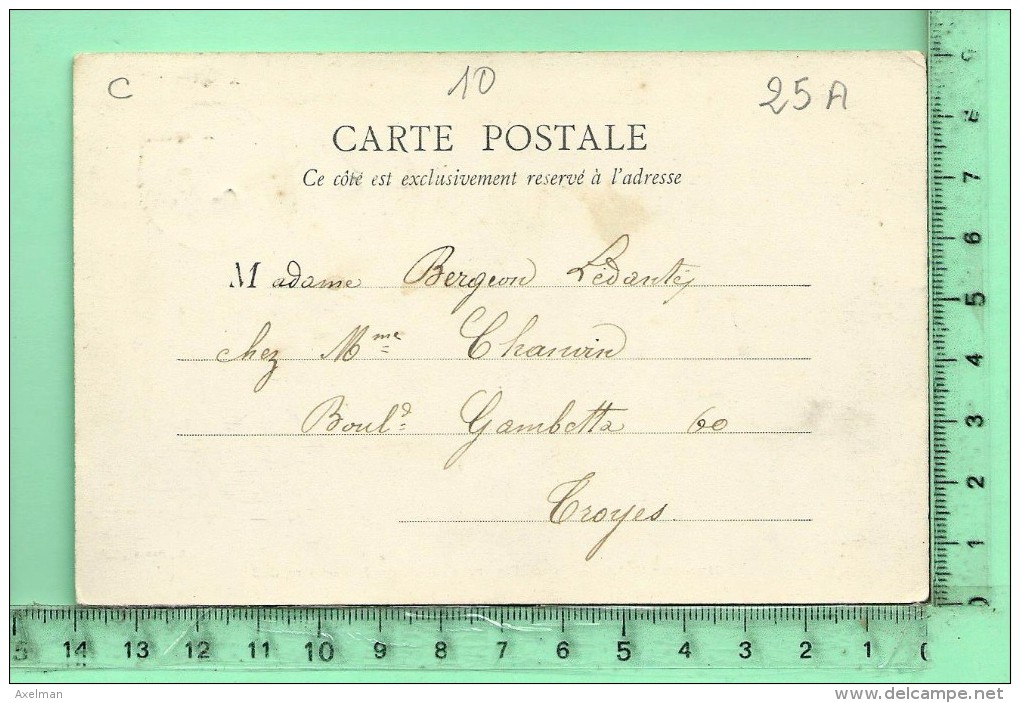 C 10 25 A
CARTE POSTALE
Ce côté est exclusivement reservé à l'adresse
Madame Bergeon
chez Mme Chanvin
Bould Gambetta 60
Troyes
8
7
6
5
4
3
2
1
0
15 14 13 12 11 10 9 8 7 6 5 4 3 2 1 0
Axelman
www.delcampe.net